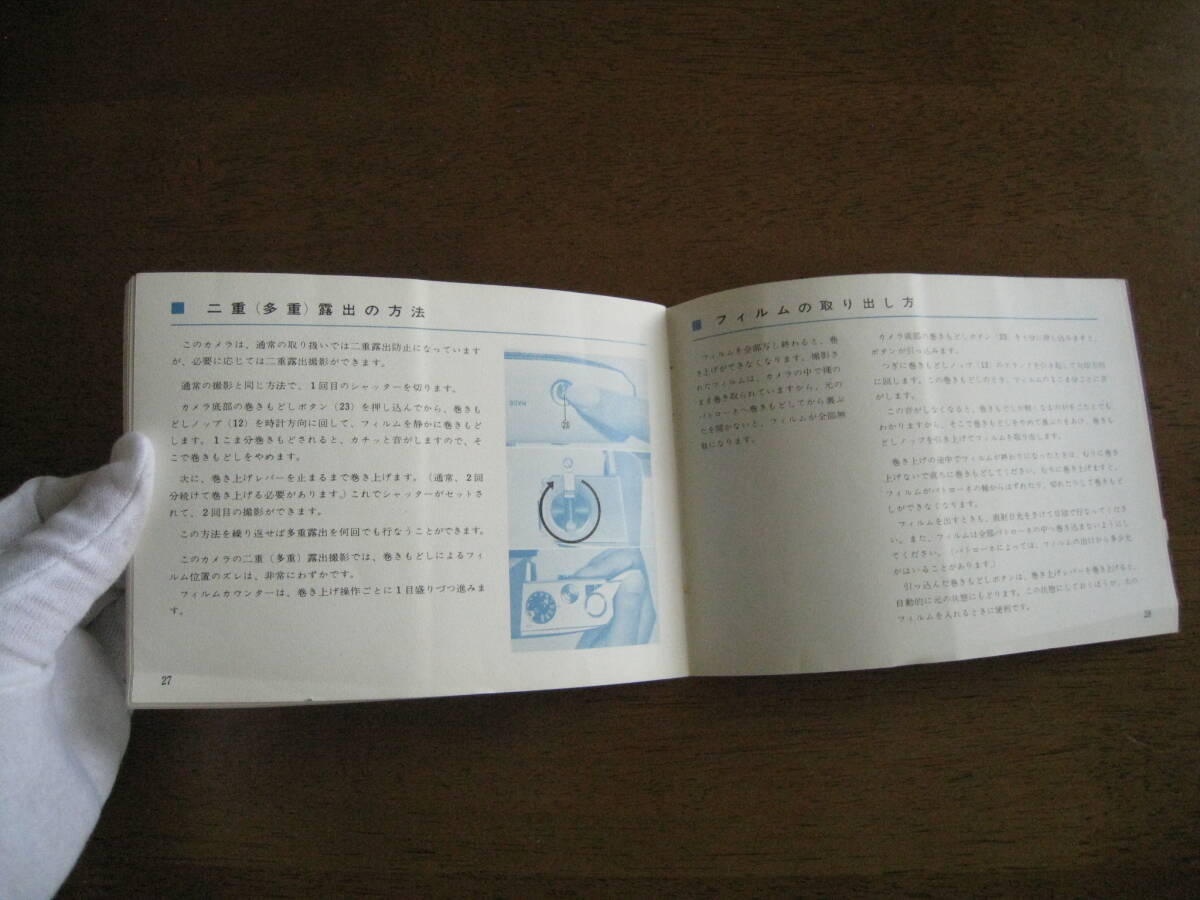 ■ 二重(多重)露出の方法
このカメラは、通常の取り扱いでは二重露出防止になっています
が、必要に応じては二重露出撮影ができます。
通常の撮影と同じ方法で、1回目のシャッターを切ります。
カメラ底部の巻きもどしボタン(23)を押し込んでから、巻きも
どしノップ(12)を時計方向に回して、フィルムを静かに巻きもど
します。1こま分巻きもどされると、カチッと音がしますので、そ
こで巻きもどしをやめます。
次に、巻き上げレバーを止まるまで巻き上げます。(通常、2回
分続けて巻き上げる必要があります。)これでシャッターがセットさ
れて、2回目の撮影ができます。
この方法を繰り返せば多重露出を何回でも行なうことができます。
このカメラの二重(多重)露出撮影では、巻きもどしによるフィ
ルム位置のズレは、非常にわずかです。
フィルムカウンターは、巻き上げ操作ごとに1目盛りづつ進みま
す。
23
27
■ フィルムの取り出し方
フィルムを全部写し終わると、巻
き上げができなくなります。撮影さ
れたフィルムは、カメラの中で裸の
まま巻き取られていますから、元の
パトローネへ巻きもどしてから裏ぶ
たを開かないと、フィルムが全部無
駄になります。
カメラ底部の巻きもどしボタン(23)を十分に押し込みますと、
ボタンが引っ込みます。
つぎに巻きもどしノップ(12)のクランクを引き起して矢印方向
に回します。この巻きもどしのとき、フィルムの1こま分ごとに音
がします。
この音がしなくなると、巻きもどしが軽くなるのが手ごたえでも
わかりますから、そこで巻きもどしをやめて裏ぶたをあけ、巻きも
どしノップを引き上げてフィルムを取り出します。
巻き上げの途中でフィルムが終わりになったときは、むりに巻き
上げないで直ちに巻きもどしてください。むりに巻き上げますと、
フィルムがパトローネの軸からはずれたり、切れたりして巻きもど
しができなくなります。
フィルムを出すときも、直射日光をさけて日陰で行なってくださ
い。また、フィルムは全部パトローネの中へ巻き込まないようにし
てください。(パトローネによっては、フィルムの出口から多少光
がはいることがあります。)
引っ込んだ巻きもどしボタンは、巻き上げレバーを巻き上げると、
自動的に元の状態にもどります。この状態にしておくほうが、次の
フィルムを入れるときに便利です。
28